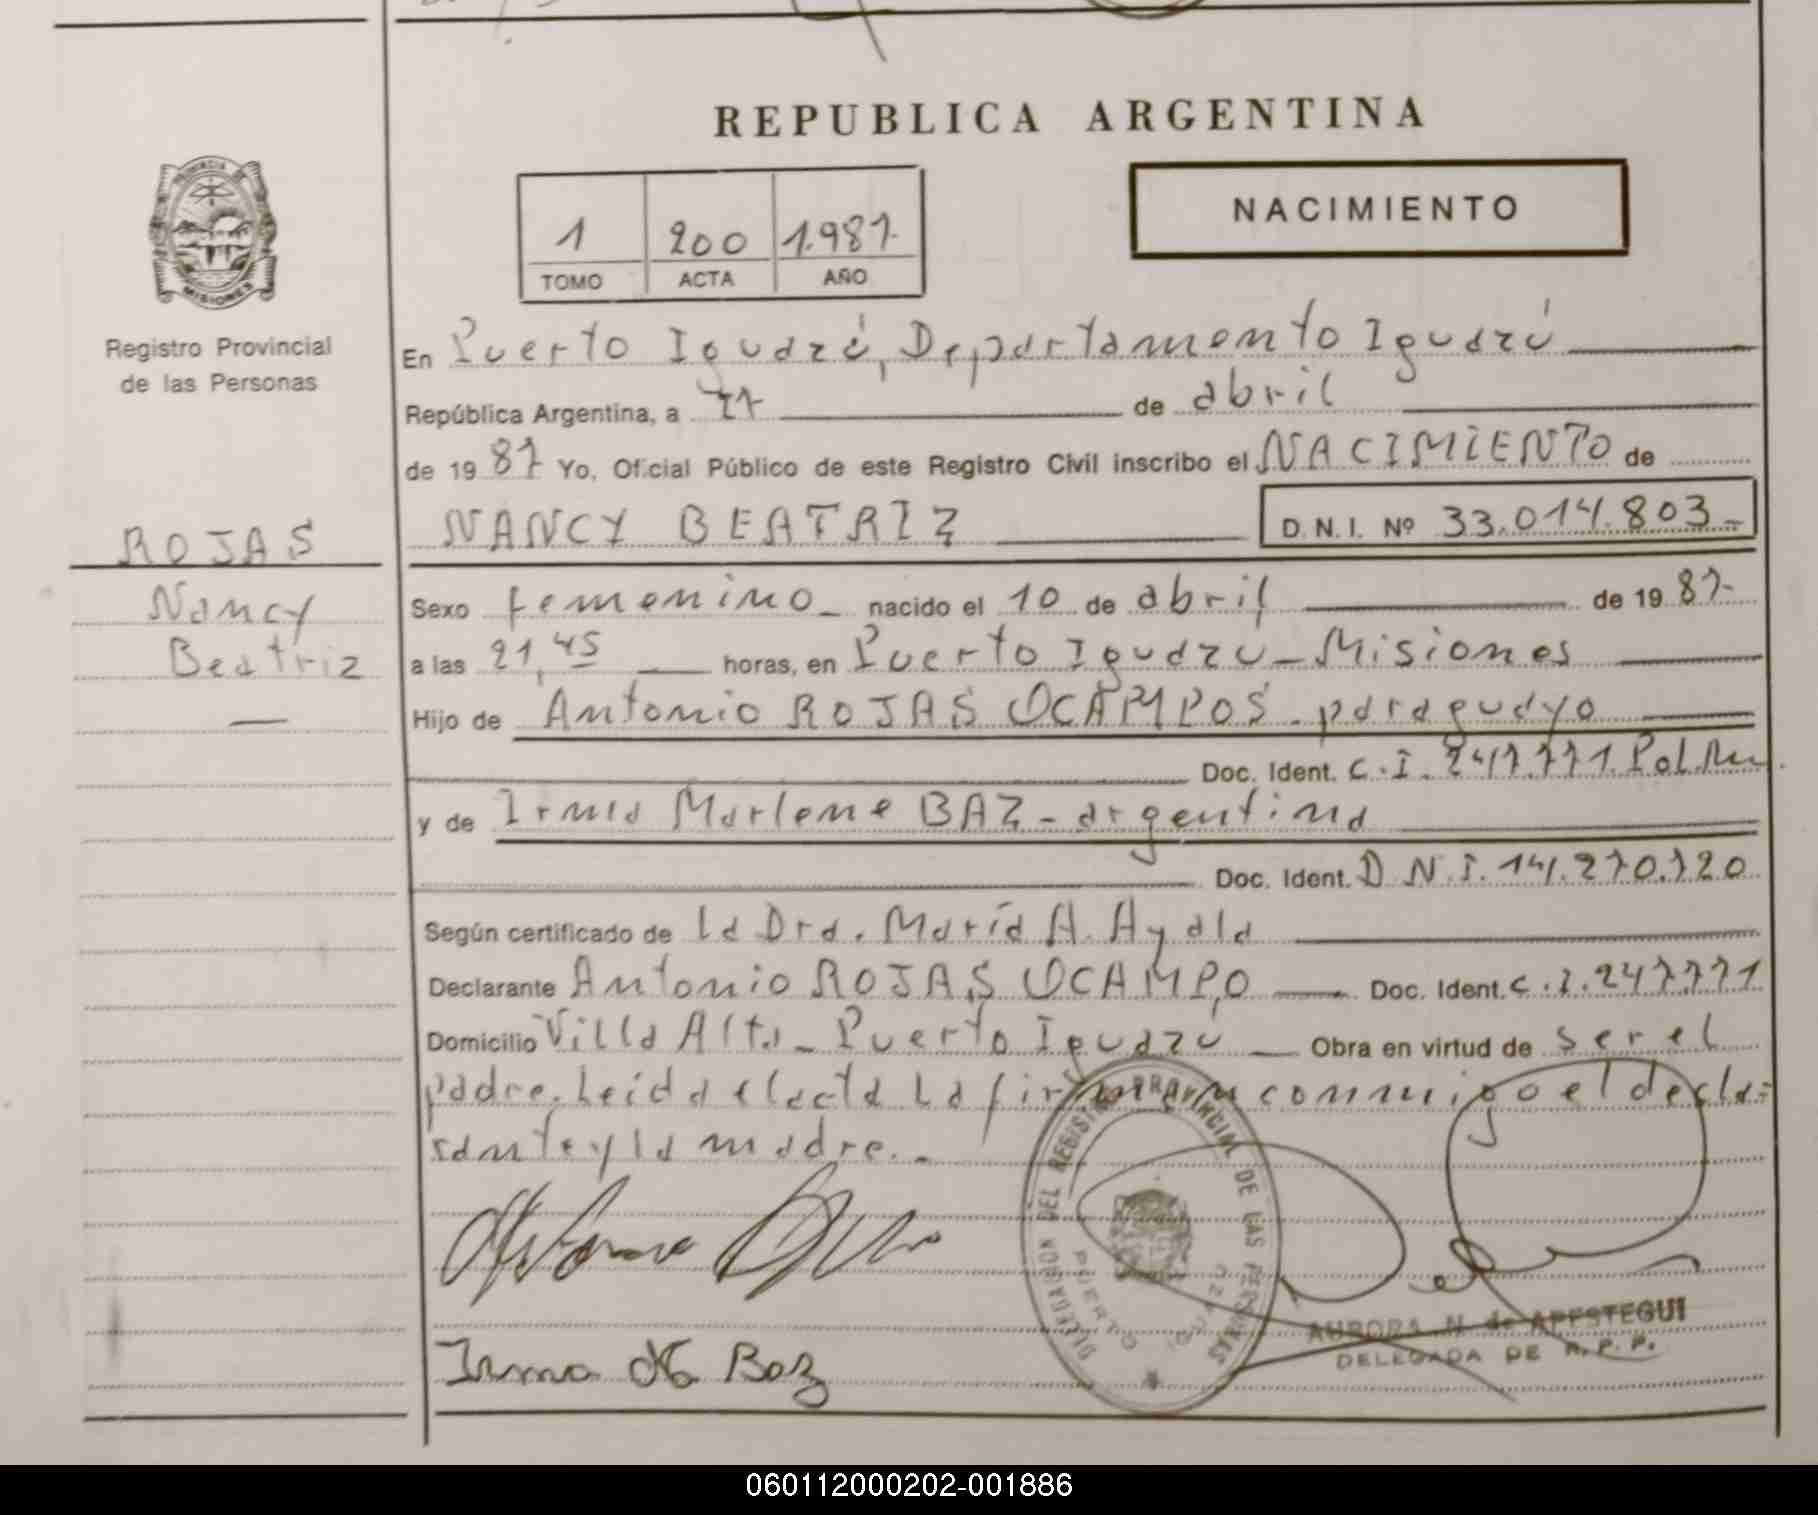 REPUBLICA ARGENTINA
NACIMIENTO
1 200 1.987.
TOMO ACTA AÑO
PROVINCIA DE MISIONES
Registro Provincial
de las Personas
ROJAS
Nancy
Beatriz
En Puerto Iguazú, Departamento Iguazú
República Argentina, a de abril
de 19 87 Yo, Oficial Público de este Registro Civil inscribo el NACIMIENTO de
NANCY BEATRIZ D.N.I. Nº 33.014.803-
Sexo femenino- nacido el 10 de abril de 19 87-
a las 21,45 horas, en Puerto Iguazú-Misiones
Hijo de Antonio ROJAS OCAMPOS- paraguayo
Doc. Ident. C.I. 247.771. Pol.
y de Irma Marlene BAZ- argentina
Doc. Ident. D.N.I. 14.270.720
Según certificado de la Dra. María A. Ayala
Declarante Antonio ROJAS OCAMPO Doc. Ident. C.I. 247.771
Domicilio Villa Alta- Puerto Iguazu Obra en virtud de ser el
padre. Leida el acta la firman conmigo el decla=
rante y la madre.-
DELEGACION DEL REGISTRO PROVINCIAL DE LAS PERSONAS
PUERTO IGUAZU
AURORA N. de APESTEGUI
DELEGADA DE R.P.P.
Irma de Baz
060112000202-001886